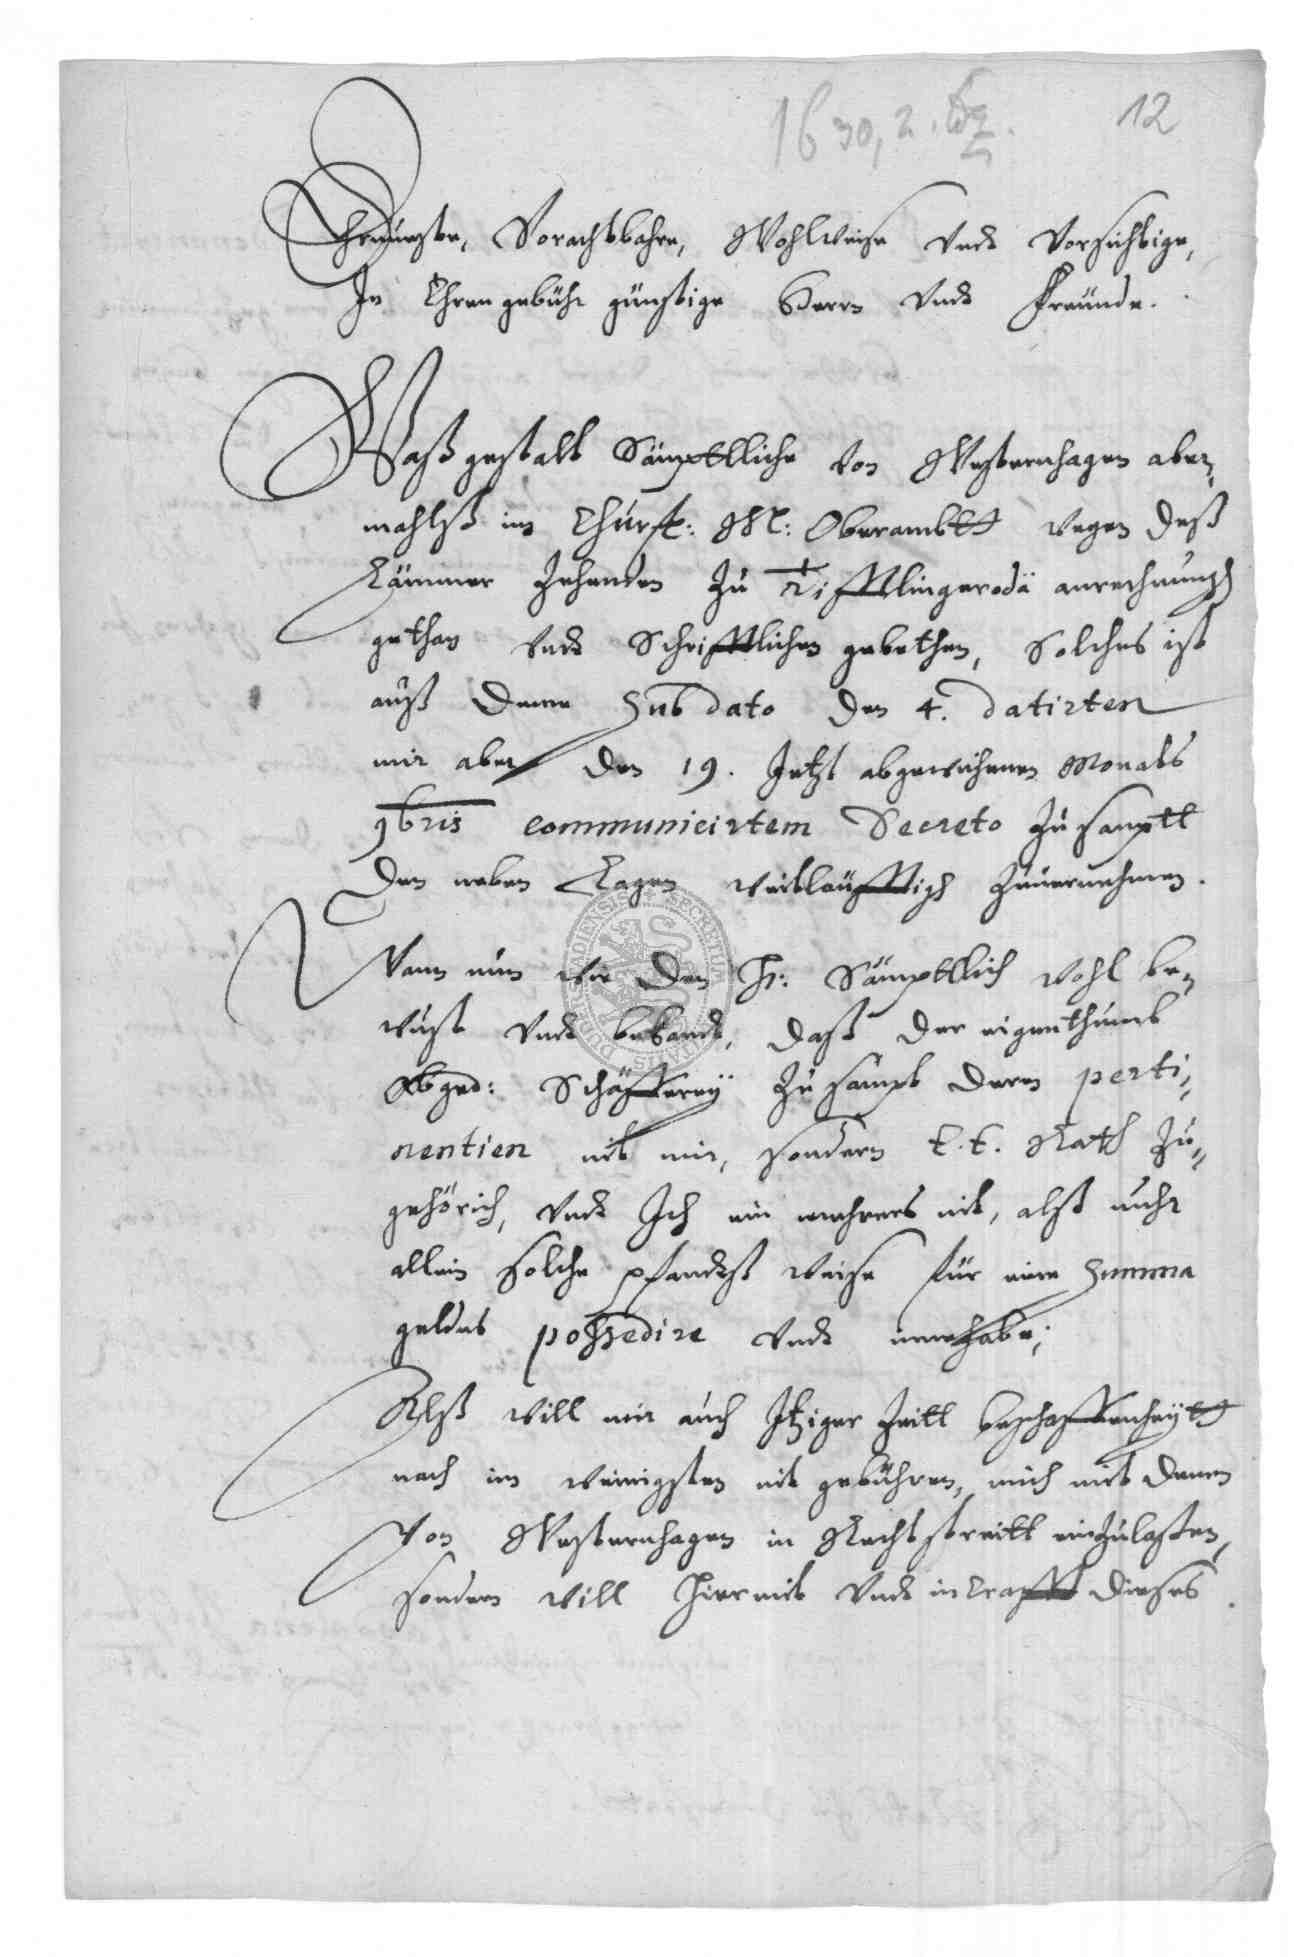 1630, 2. 12
Ehrnueste, Vorachtbahre, Wohlweise vndt Vorsichtige,
In Ehren gebühr günstige Herrn vndt Freünde.
Waß gestalt Sämptlliche von Westernhagen aber,
mahlß im Churf: M: Oberambtt wegen deß
Lämmer Zehenden zu Tifftlingerodä anrechnungh
gethan vndt Schrifftlichen gebethen, Solches ist
auß deme sub dato den 4. datirten
mir aber den 19. Jetzt abgewichenen Monats
9bris communicirtem Decreto zu samptt
den neben Lagen weitleüfftigh zuuernehmen.
Wann nun wie den H: Sämptlich wohl be,
wust vndt bekandt, daß der eigenthumb
Obged: Schäfferey zu sampt deren perti,
nentien nit mir, sondern E. E. Rath zu,
gehörich, vndt Ich ein mehrers nit, alß nuhr
allein solche pfandtß weise für eine Summa
geldes possedire vndt innehabe;
Alß will mir auch Itziger Zeitt beschaffenheytt
nach im wenigsten nit gebühren, mich mit denen
Von Westernhagen in Rechtstreitt einzulaßen,
sondern will Hiermit vndt in Crafft dieses
SECRETUM